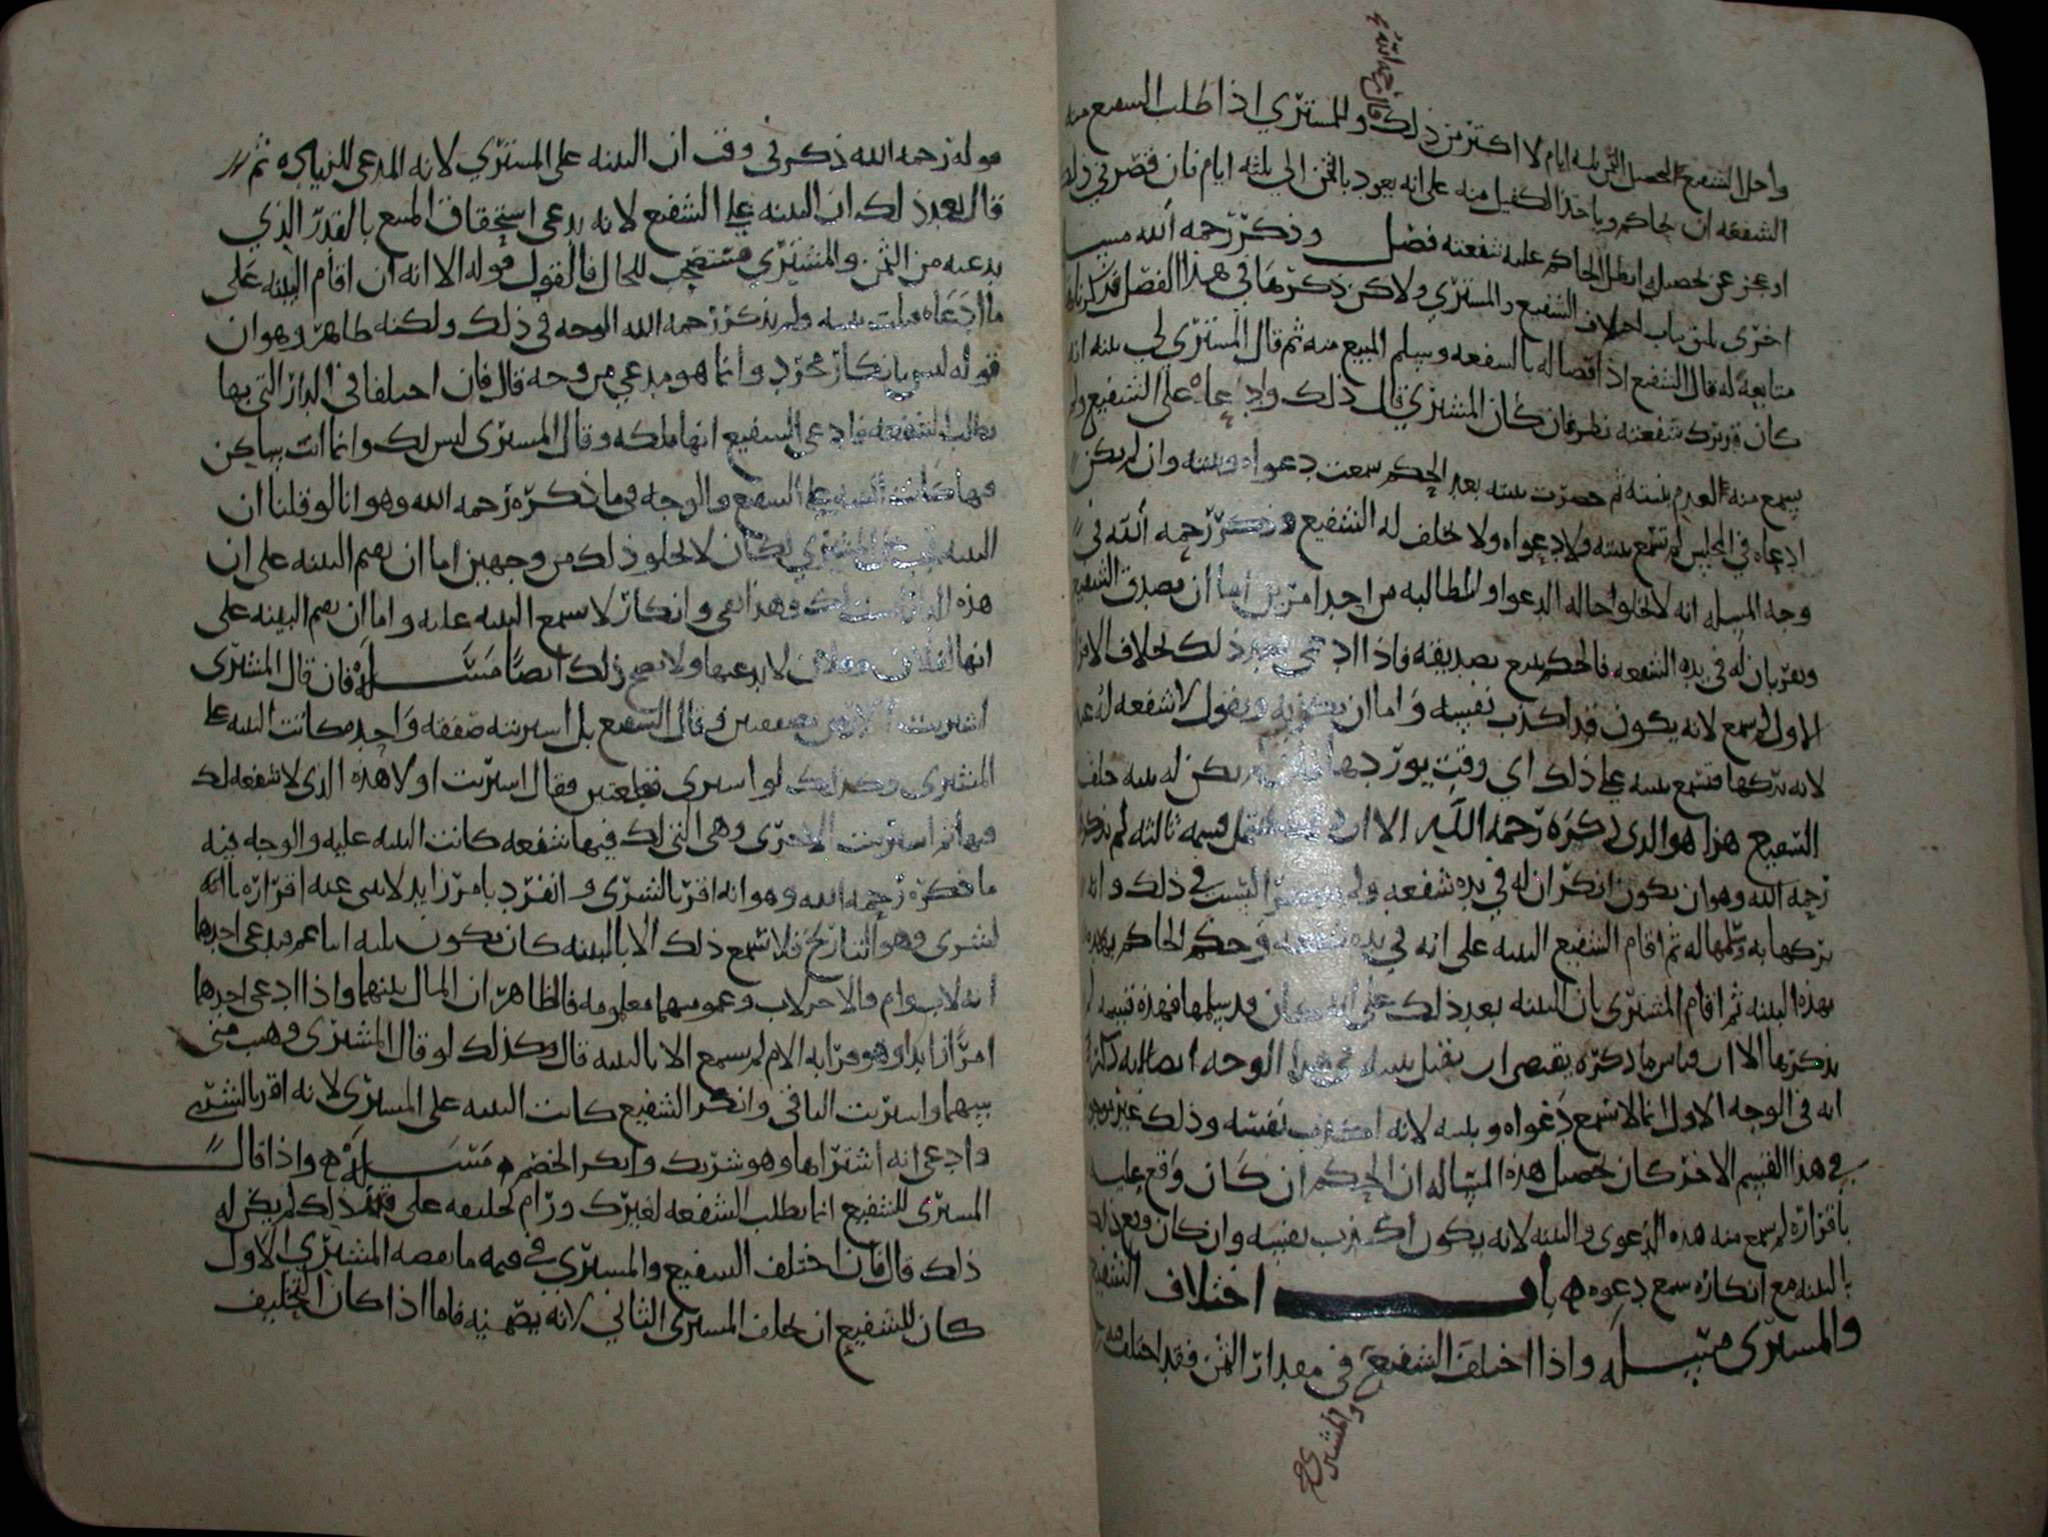 قال رحمه الله
واجل الشفيع لتحصيل الثمن ثلثه ايام لا اكثر من ذلك وللمشتري اذا طلب الشفيع منه
الشفعه ان يحاكم وياخذ الكفيل منه على انه يعود بالثمن الى ثلثه ايام فان قصر في ذلك
او عجز عن تحصيله ابطل الحاكم عليه شفعته فصل وذكر رحمه الله
اخرى باب اختلاف الشفيع والمشتري ولاكن ذكرها في هذا الفصل
متابعة له قال الشفيع اذا قضا له بالشفعه وسلم المبيع منه ثم قال المشتري لي بينه انه
كان قد ترك شفعته نظر فان كان المشتري قال ذلك وادعاه على الشفيع ولم
يسمع منه لعدم بينته ثم حضرت بينته بعد الحكم سمعت دعواه وبينته وان لم يكن
ادعاه في المجلس لم تسمع بينته ولا دعواه ولا يحلف له الشفيع وذكر رحمه الله في
وجه المسله انه لا يخلوا حاله الدعوا والمطالبه من احد امرين اما ان يصدق الشفيع
ويقر بان له في يده الشفعه فالحكم يقع بصديقه فاذا ادعى بعد ذلك بخلاف الاقرار
الاول لم يسمع لانه يكون قد اكذب نفسه واما ان يكذبه ويقول لا شفعه له
لانه تركها فتسمع بينته على ذلك اي وقت يوردها يكن له بينه حلف
الشفيع هذا هو الذي ذكره رحمه الله الا ان قسمه ثالثه لم يذكرها
رحمه الله وهو ان يكون انكر ان له في يده شفعه ولم السبب في ذلك وانه
تركها به وسلمها له ثم اقام الشفيع البينه على انه في يده شفعه وحكم الحاكم
بهذه البينه ثم اقام المشتري بان البينه بعد ذلك على انه كان قد سلمها فهذه قسمه لم
يذكرها الا ان قياس ما ذكره يقتضي ان تقبل بينته في هذا الوجه ايضا
انه في الوجه الاول انما لا تسمع دعواه وبينته لانه اكذب نفسه وذلك غير موجود
في هذا القسم الاخر كان تحصيل هذه المساله ان الحكم ان كان وقع عليه
باقراره لم يسمع منه هذه الدعوى والبينه لانه يكون اكذب نفسه وان كان وقع ذلك
بالبينه مع انكاره سمع دعوه باب اختلاف الشفيع
والمشتري مسله واذا اختلف الشفيع في مقدار الثمن فقد اختلف
والمشتري صح
قوله رحمه الله ذكر في وقت ان البينه على المشتري لانه المدعي للزياده ثم
قال بعد ذلك ان البينه على الشفيع لانه يدعي استحقاق المبيع بالقدر الذي
يدعيه من الثمن والمشتري مستصحب للحال فالقول قوله الا انه ان اقام البينه على
ما ادعاه قبلت بينته ولم يذكر رحمه الله الوجه في ذلك ولكنه ظاهر وهو ان
قوله ليس بانكار مجرد وانما هو مدعي من وجه قال فان اختلفا في الدار التي بها
يطلب الشفعه فادعى الشفيع انها ملكه وقال المشتري ليس لك وانما انت ساكن
فيها كانت البينه على الشفيع والوجه فيما ذكره رحمه الله وهو انا لو قلنا ان
البينه تجب على المشتري لكان لا يخلو ذلك من وجهين اما ان يقيم البينه على ان
هذه الدار ليست لك وهذا نفي وانكار لا تسمع البينه عليه واما ان يقيم البينه على
انها لفلان وفلان لا يدعيها ولا يصح ذلك ايضا مسله فان قال المشتري
اشتريت الارض بصفقتين وقال الشفيع بل اشتريته صفقه واحده كانت البينه على
المشتري وكذلك لو اشترى قطعتين فقال اشتريت اولا هذه الذي لا شفعه لك
فيها ثم اشتريت الاخرى وهي التي لك فيها شفعه كانت البينه عليه والوجه فيه
ما ذكره رحمه الله وهو انه اقر بالشرى وانفرد بامر زايد لا ينبي عنه اقراره بانه
اشترى وهو التاريخ فلا تسمع ذلك الا بالبينه كان يكون بينه ابنا عم فيدعي احدهما
انه لاب وام والاخر لاب وعمومتهما معلومه فالظاهر ان المال بينهما واذا ادعى احدهما
امرا زايدا وهو قرابه الام لم يسمع الا بالبينه قال وكذلك لو قال المشتري وهب مني
سهما واشتريت الباقي وانكر الشفيع كانت البينه على المشتري لانه اقر بالشرى
وادعى انه اشتراها وهو شريك وانكر الخصم مسله واذا قال
المشتري للشفيع انما يطلب الشفعه لغيرك ورام تحليفه على ذلك لم يكن له
ذلك قال فان اختلف الشفيع والمشتري في قيمه ما نقصه المشتري الاول
كان للشفيع ان يحلف المشتري الثاني لانه يضمنيه فاما اذا كان التحليف